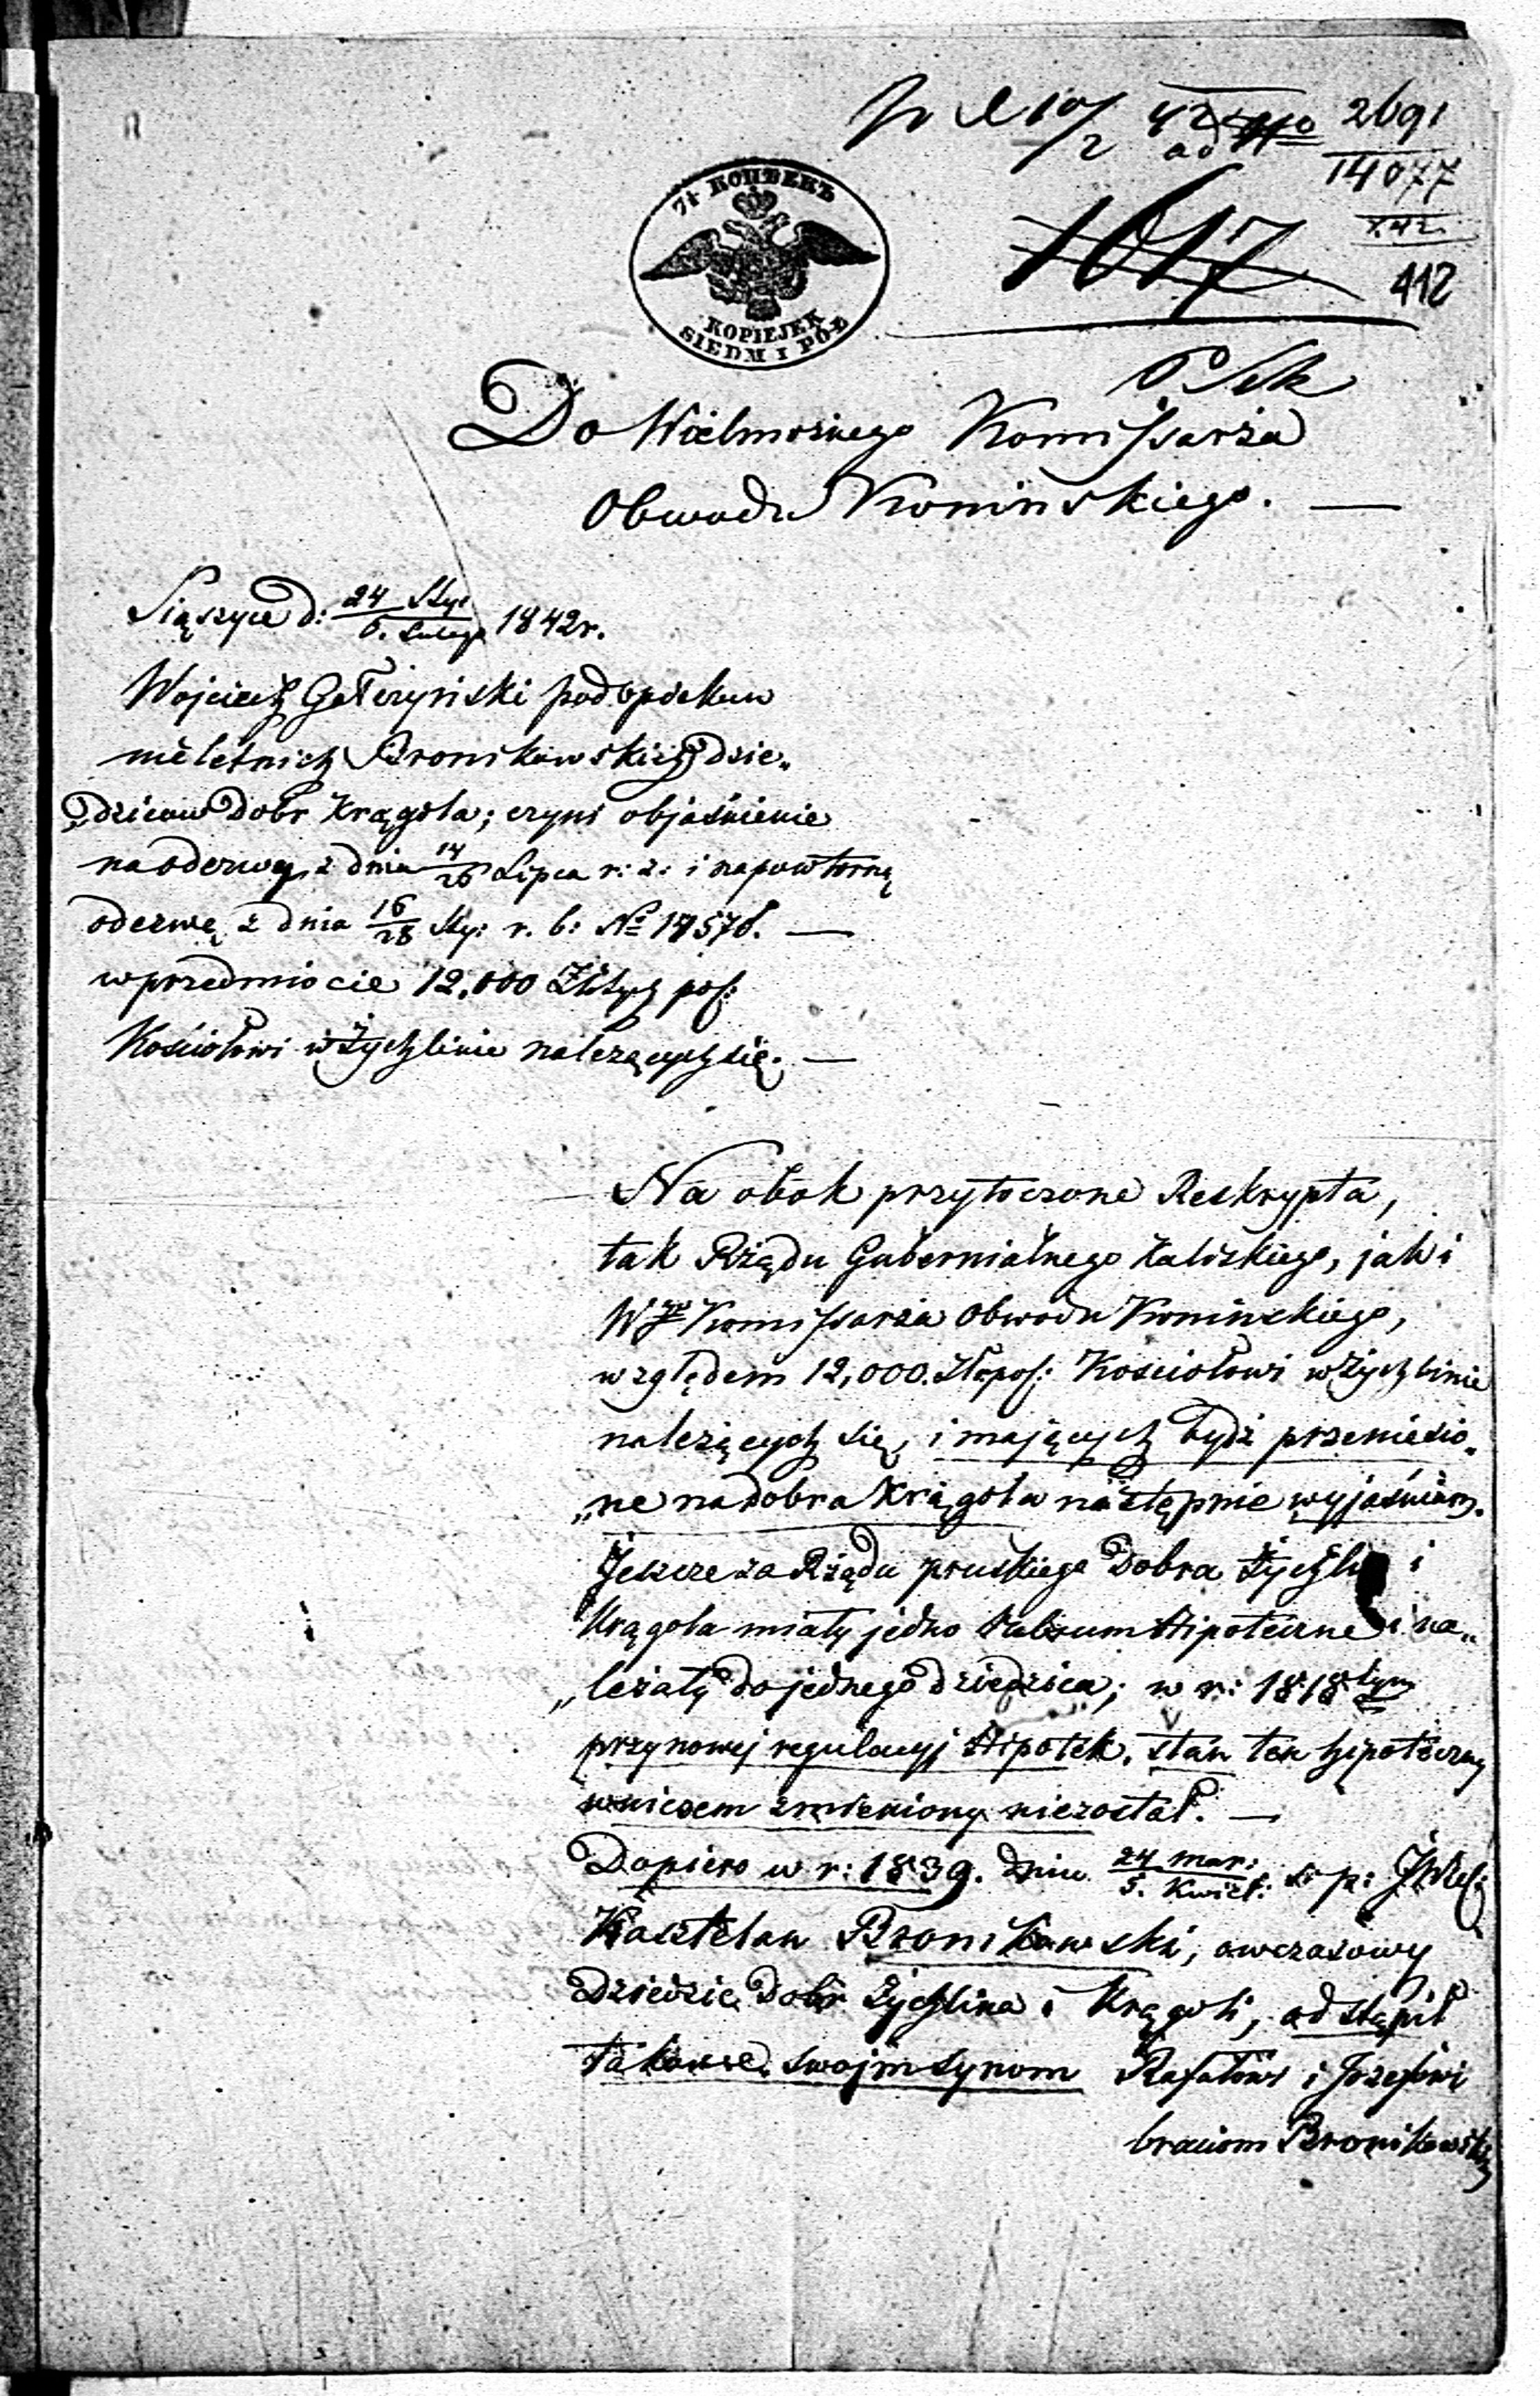 2691
14077
112
1017
7½ КОПѢЕКЪ
KOPIEJEK
SIEDM I PÓŁ
Do Wielmożnego Komissarza
Obwodu Konińskiego. —
Siąszyce d: 24 Stycz / 5. Lutego 1842r.
Wojciech Gałczyński podopiekun
nieletnich Bronikowskich dzie„
„dziców Dobr Krągola; czyni objaśnienie
na odezwę z dnia 14/26 Lipca r: z: i na powtorną
odezwę z dnia 16/28 Sty: r. b: No 17576. —
w przedmiocie 12,000 Złotych pol:
Kościołowi w Żychlinie należących się. —
Na obok przytoczone Reskrypta,
tak Rządu Gubernialnego Kaliskiego, jak i
Wgo Komissarza Obwodu Konińskiego,
względem 12,000. Złopol: Kościołowi w Żychlinie
należących się, i mających bydź przeniesio„
„ne na dobra Krągola następnie wyjaśniam.
Jeszcze za Rządu pruskiego Dobra Żychlin i
Krągola miały jedno Hipoteczne i na„
„leżały do jednego dziedzica; w r: 1818tym
przy nowej regulacyj Hipotek, stan ten hipoteczny
w niczem zmieniony niezostał. —
Dopiero w r: 1839. dniu 24 mar: / 5. Kwiet: ś: p:
Kasztelan Bronikowski, owczasowy
Dziedzic Dobr Żychlina i Krągoli, odstąpił
takowe swojm synom Rafałowi i Jozefowi
braciom Bronikowskim